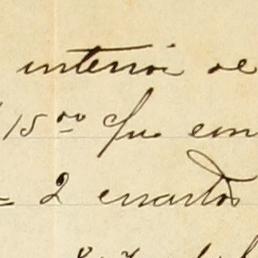 interior de
15 00 que em
2 cuartos